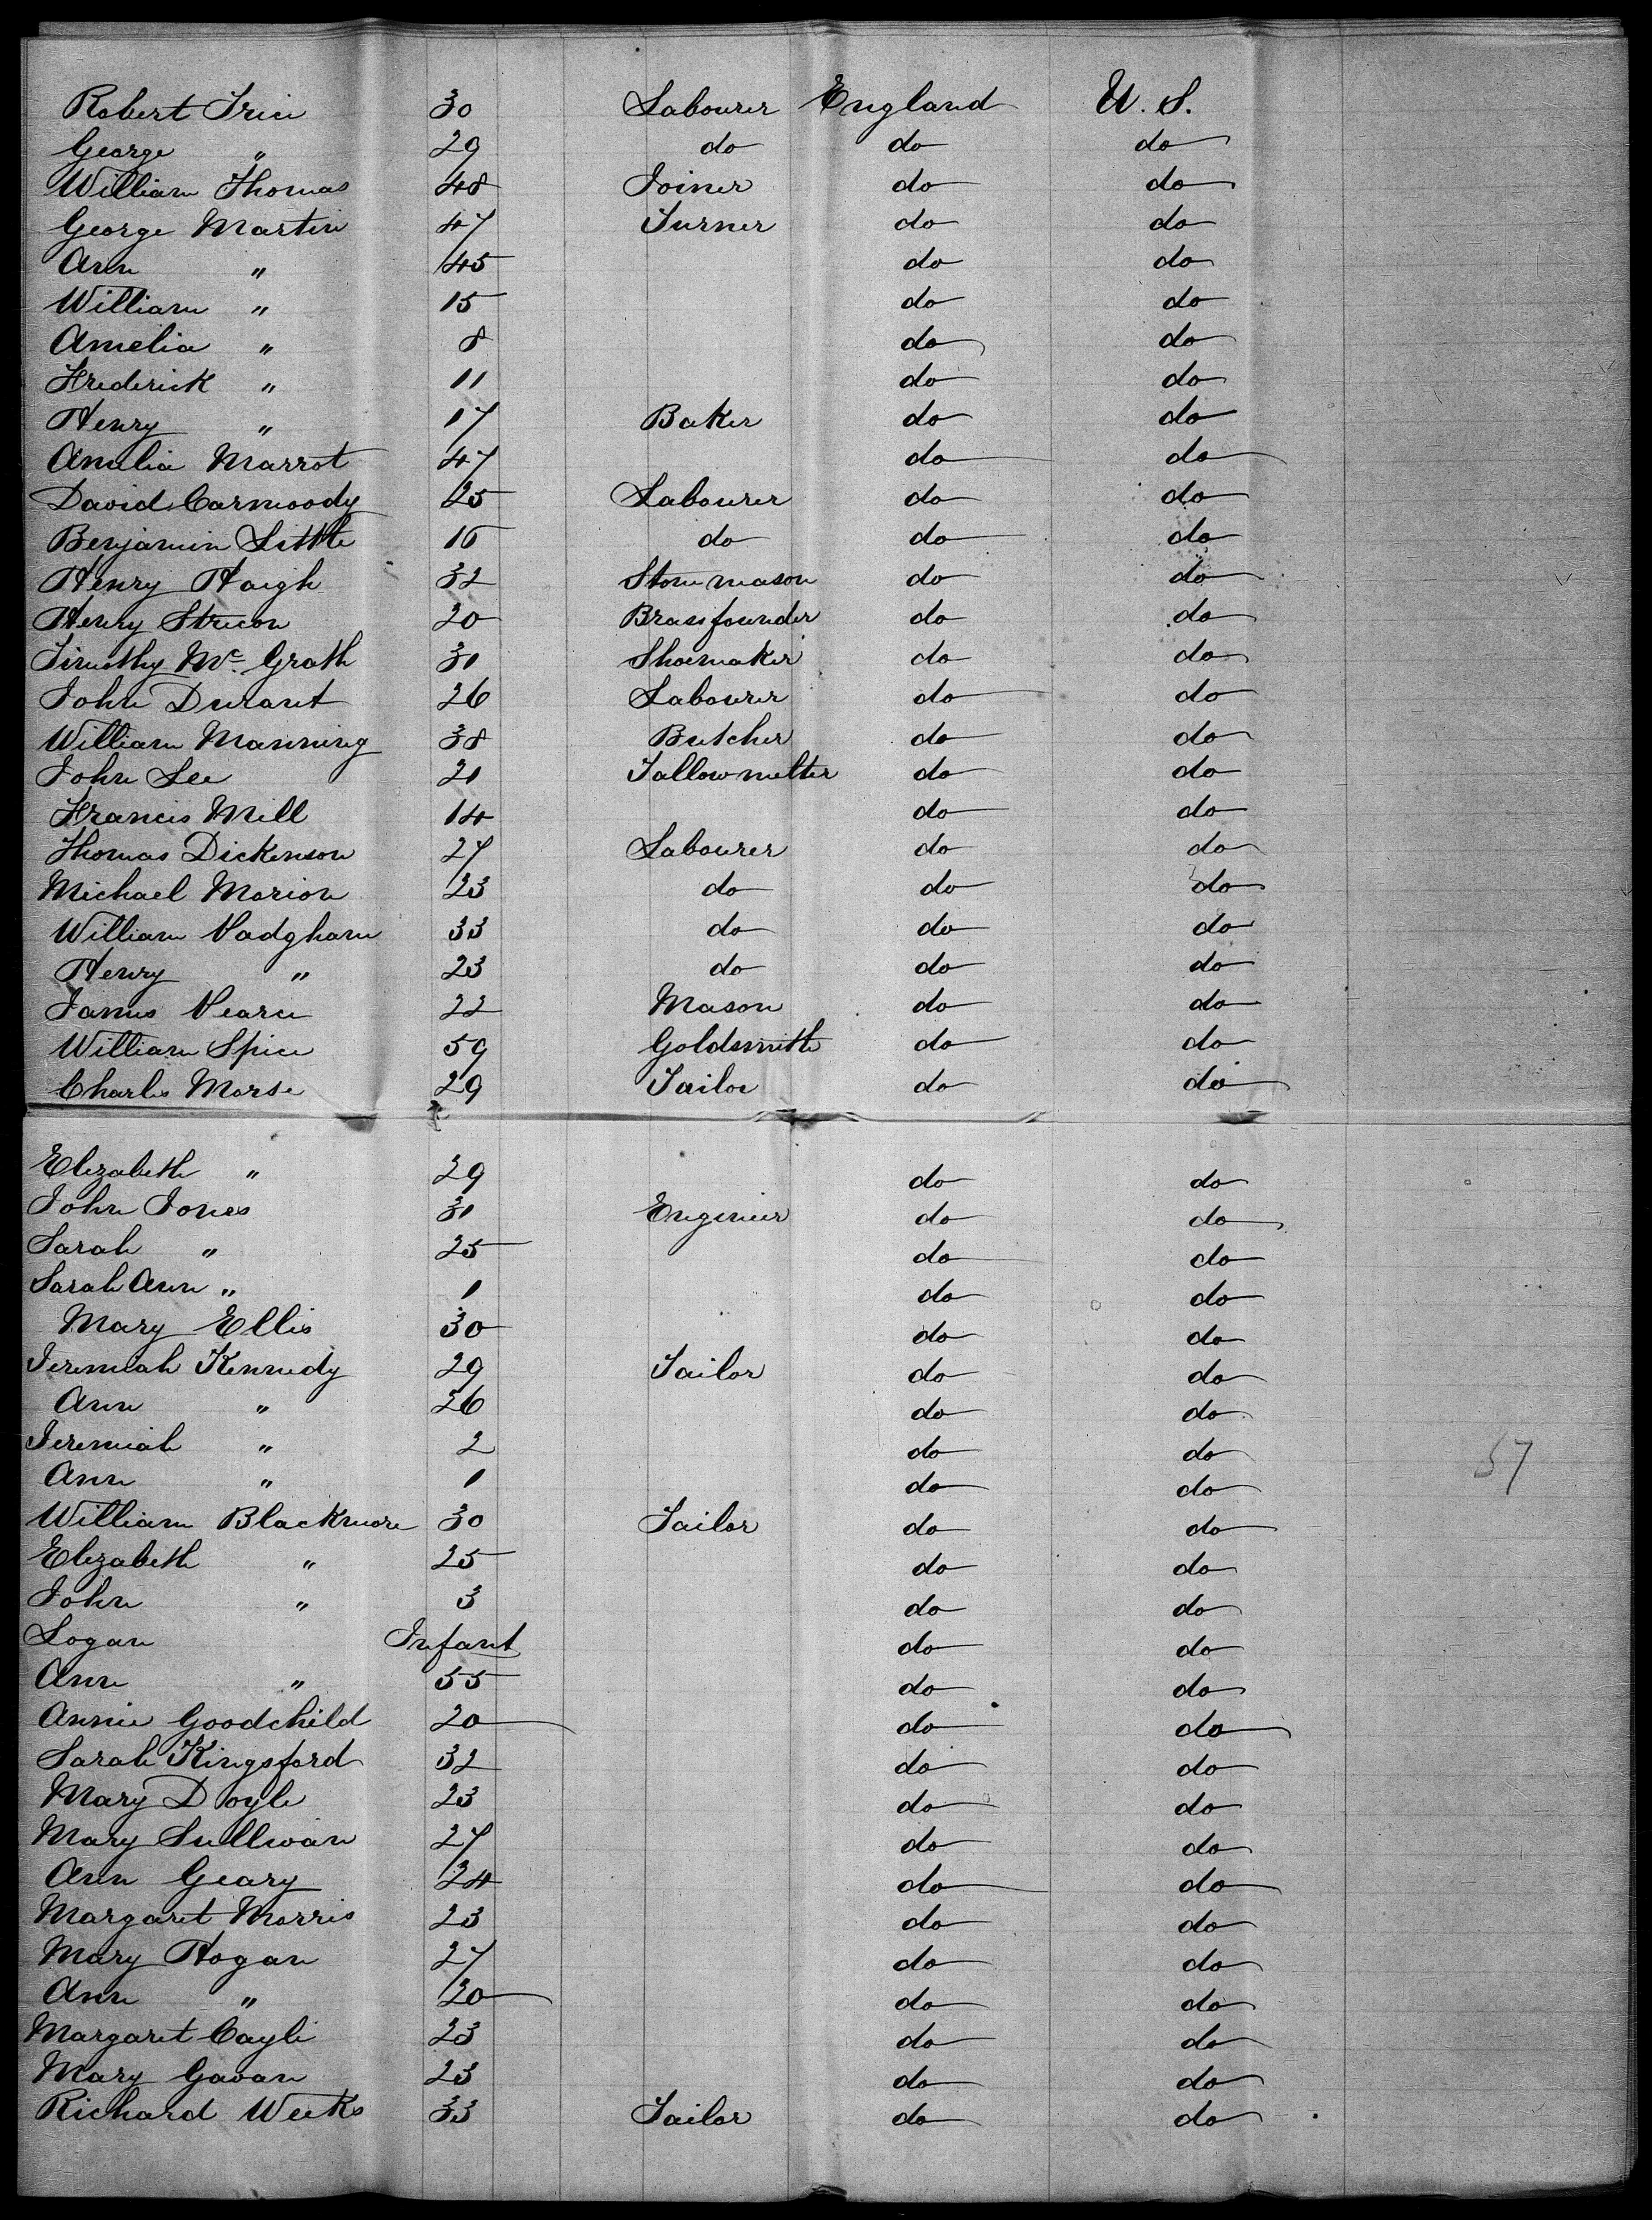 Robert Price 30 Labourer England U. S.
George " 29 do do do
William Thomas 48 Joiner do do
George Martin 47 Turner do do
Ann " 45 do do
William " 15 do do
Amelia " 8 do do
Frederick " 11 do do
Henry " 17 Baker do do
Amelia Marrot 47 do do
David Carmoody 25 Labourer do do
Benjamin Little 16 do do do
Henry Haigh 32 Stone mason do do
Henry 20 Brassfounder do do
Timothy Mc Grath 31 Shoemaker do do
John Durant 26 Labourer do do
William Manning 38 Butcher do do
John Lee 21 Tallow melter do do
Francis Mill 14 do do
Thomas Dickenson 27 Labourer do do
Michael Morion 23 do do do
William Padgham 33 do do do
Henry " 23 do do do
James Pearce 22 Mason do do
William Spice 59 Goldsmith do do
Charles Morse 29 Tailor do do
Elizabeth " 29 do do
John Jones 31 Engineer do do
Sarah " 25 do do
Sarah Ann " 1 do do
Mary Ellis 30 do do
Jeremiah Kennedy 29 Tailor do do
Ann " 26 do do
Jeremiah " 2 do do
Ann " 1 do do
57
William Blackmore 30 Tailor do do
Elizabeth " 25 do do
John " 3 do do
Logan Infant do do
Ann " 55 do do
Annie Goodchild 20 do do
Sarah Kingsford 32 do do
Mary Doyle 23 do do
Mary Sullivan 27 do do
Ann Geary 24 do do
Margaret Morris 23 do do
Mary Hogan 27 do do
Ann " 20 do do
Margaret Cayli 23 do do
Mary Gavan 23 do do
Richard Weeks 33 Tailor do do